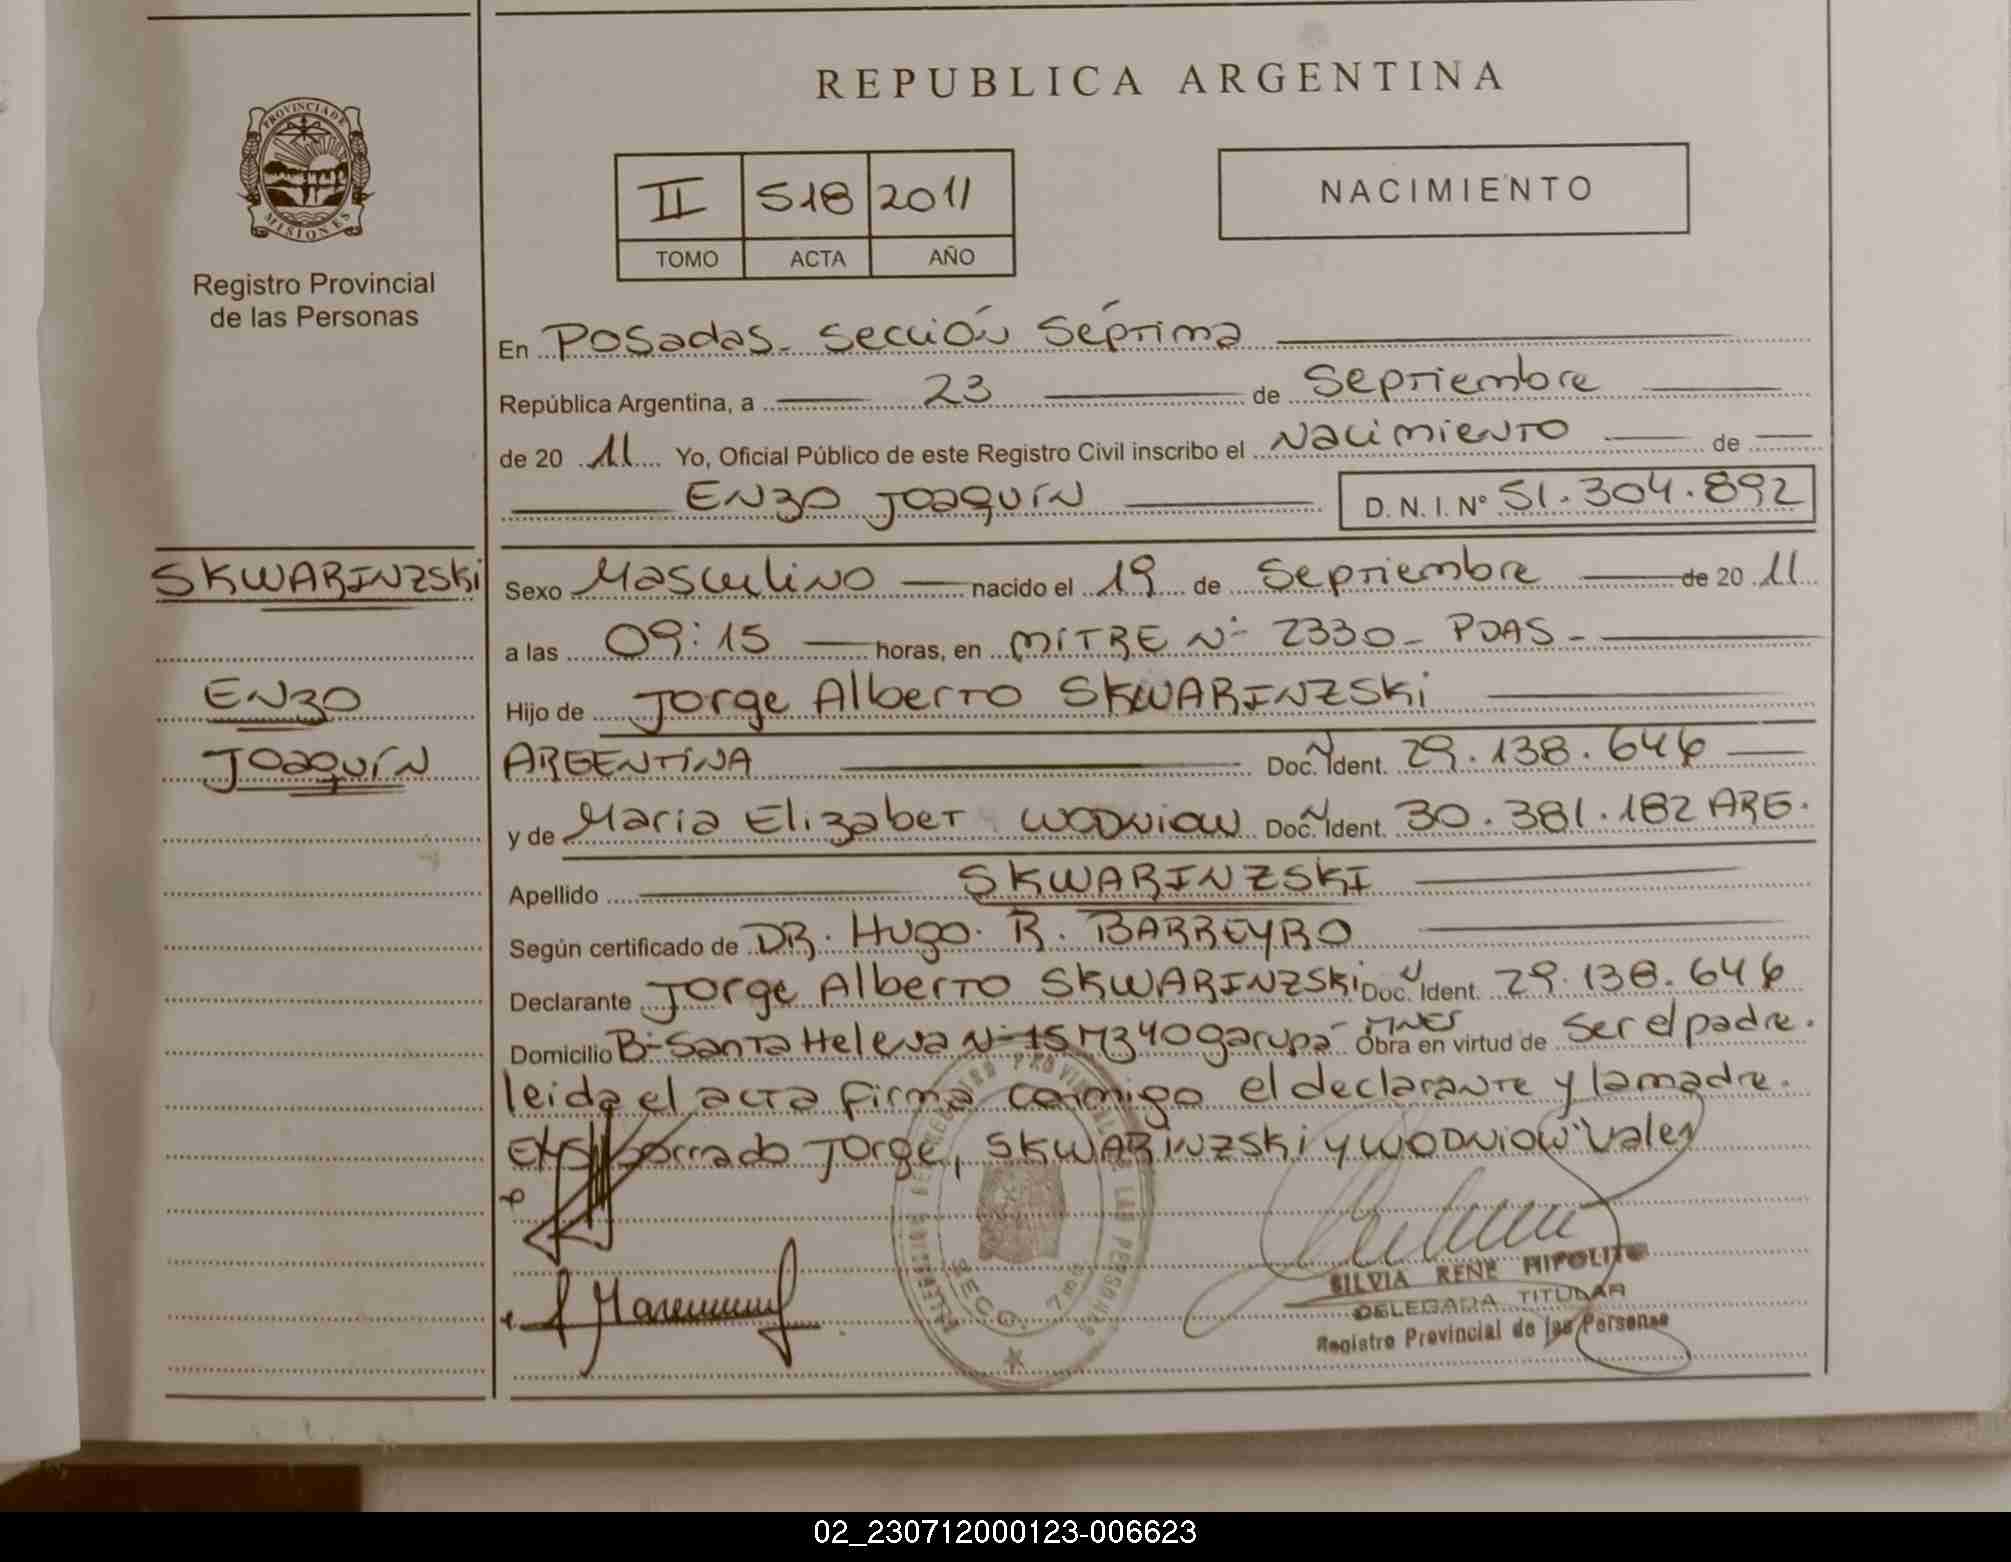 REPUBLICA ARGENTINA
PROVINCIA DE MISIONES
Registro Provincial
de las Personas
II 518 2011
TOMO ACTA AÑO
NACIMIENTO
En Posadas. Sección Séptima
República Argentina, a 23 de Septiembre
de 20 11 Yo, Oficial Público de este Registro Civil inscribo el Nacimiento de
Enzo Joaquín D. N. I. Nº 51.304.892
SKWARINZSKi
Enzo
Joaquín
Sexo Masculino nacido el 19 de Septiembre de 20 11
a las 09:15 horas, en MiTRE Nº 2330 - PDAS -
Hijo de Jorge Alberto SKWARINZSKi
ARGENTINA Doc. Ident. 29.138.646
y de Maria Elizabet WODNIOW Doc. Ident. 30.381.182 ARG.
Apellido SKWARINZSKI
Según certificado de DR. Hugo. R. BARREYRO
Declarante Jorge Alberto SKWARINZSKi Doc. Ident. 29.138.646
Domicilio Bº Santa Helena Nº 15 Mz 40 garupá - MNES Obra en virtud de Ser el padre.
leida el acta firma conmigo el declarante y la madre.
borrado Jorge, SKWARINZSKi y WODNIOW "Vale"
REGISTRO PROVINCIAL DE LAS PERSONAS
SECC. 7ma
SILVIA RENE HIPOLITO
DELEGADA TITULAR
Registro Provincial de las Personas
02_230712000123-006623